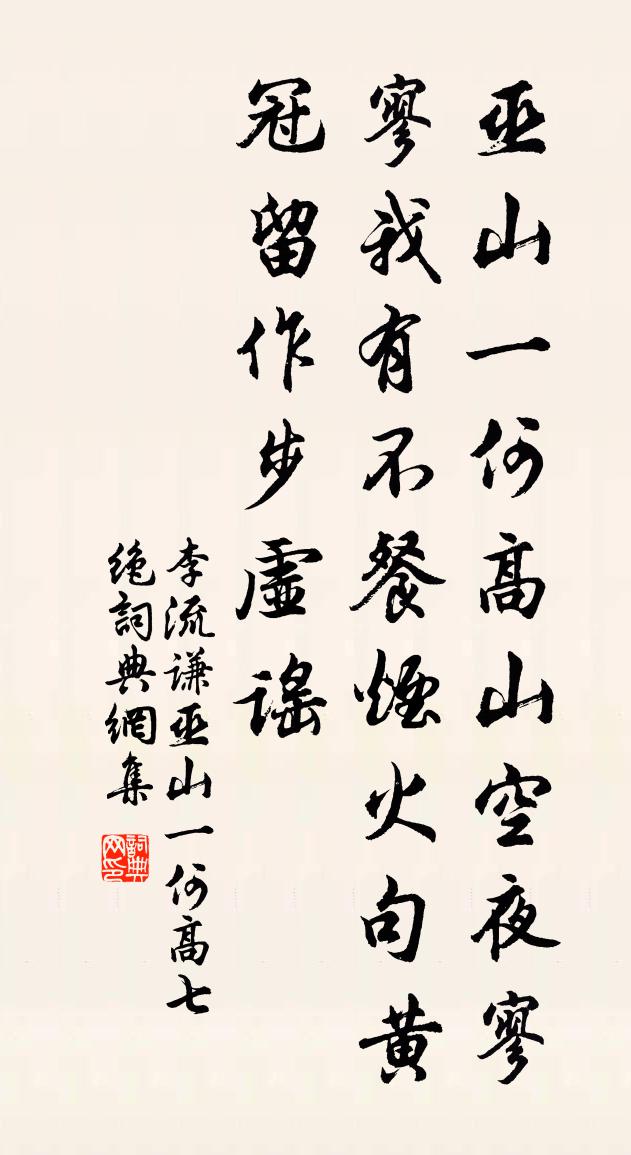 巫山一何高山空夜寥
寥我有不餐煙火句黃
冠留作步虛謠
李流謙巫山一何高七
絶詞典網集
詞典网印